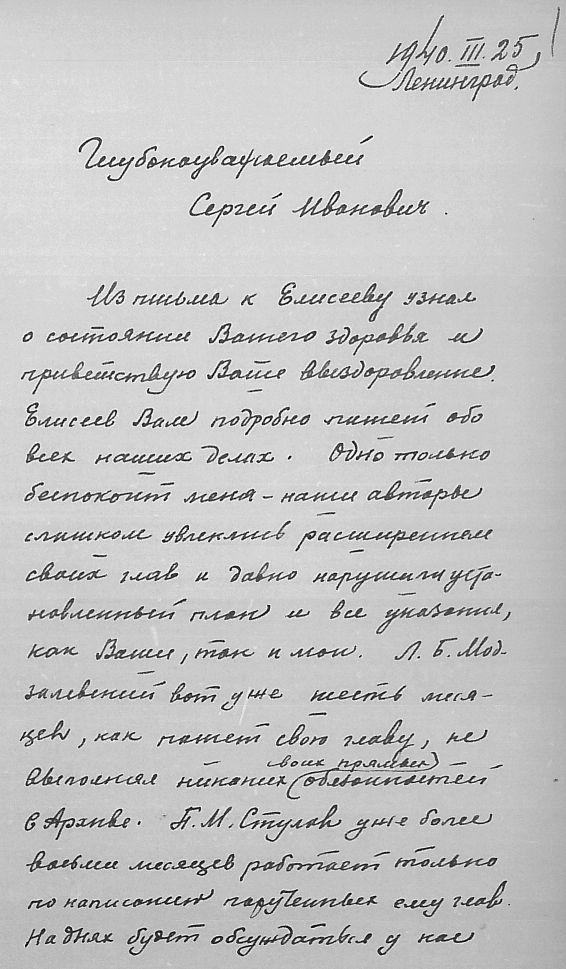 1940.III.25
Ленинград.
Глубокоуважаемый
Сергей Иванович.
Из письма к Елисееву узнал
о состоянии Вашего здоровья и
приветствую Ваше выздоровление.
Елисеев Вам подробно пишет обо
всех наших делах. Одно только
беспокоит меня – наши авторы
слишком увлеклись расширением
своих глав и давно нарушили уста-
новленный план и все указания,
как Ваши, так и мои. Л. Б. Мод-
залевский вот уже шесть меся-
цев, как пишет свою главу, не
выполняя никаких (своих прямых)
обязанностей
в Архиве. П. М. Стулов уже более
восьми месяцев работает только
по написанию порученных ему глав.
На днях будет обсуждаться у нас